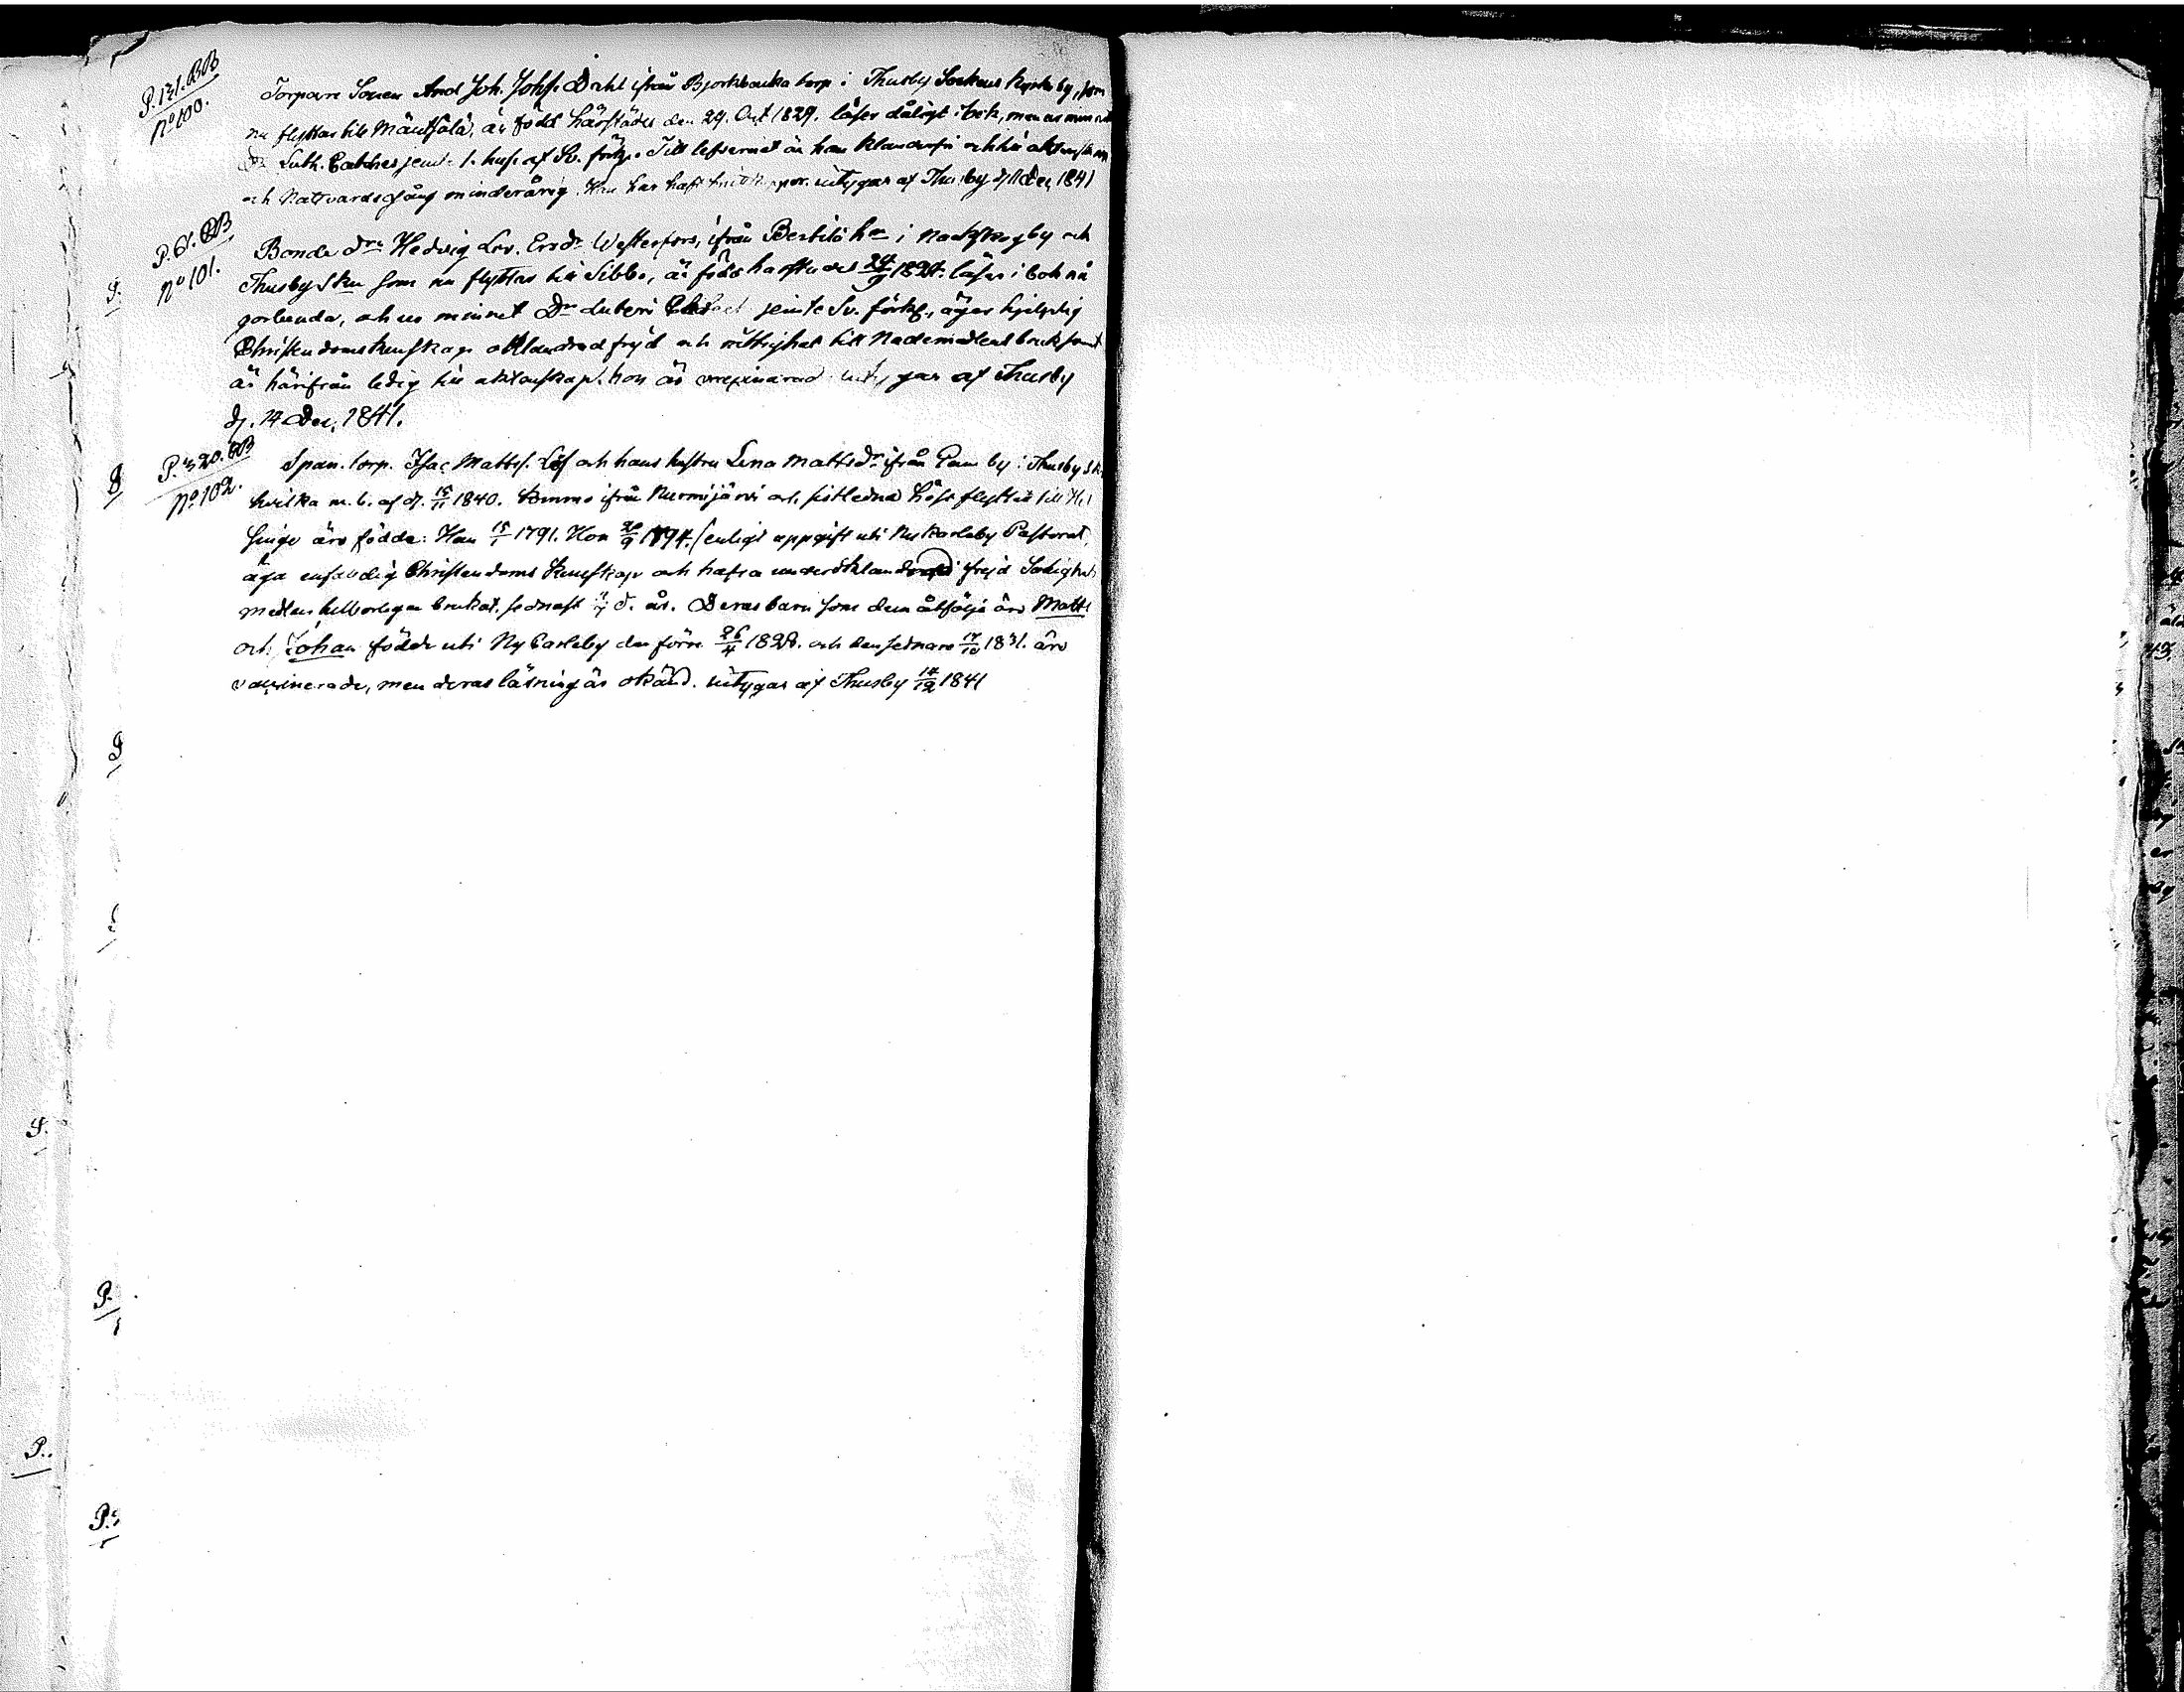 P. 131. BB
No 100.
Torpare Sonen And Joh. Johs. Dahl ifrån Bjorkbacka torp i Thusby Sockens Kyrkoby, som
nu flyttar till Mäntsälä, är född härstädes den 29. Oct 1829. läser dåligt i bok, men ur minnet
Dr Luth. Catches jemte 1. hufs. af Sv. förkl. Till lefvernet är han klanderfri och
och Nattvardsgång minderårig. Han har haft utygar af Thusby d 11 Dec, 1841
P. 61. BB
No 101.
Bonde dr Hedvig Lov. Ersdr Westerfors, ifrån Bertils hn i Nackskogby och
Thusby Skn som nu flyttar till Sibbo, är född härstädes 24 1824. läser i bok nå
gorlunda, och ur minnet Dr Luteri jemte Sv. förkl., äger hjelplig
Christendomskunskap oklandrad frejd och rättighet till Nademedlens bruk samt
är härifrån ledig till aktenskap. hon är vaccinerad utygar af Thusby
d. 14 Dec, 1841.
P. 320. BB
No 102.
Span. torp. Isac Matts. Löf och hans hustru Lena Mattsdr ifrån by i Thusby Sk.
hvilka m. b. af d. 15/11 1840. kommo ifrån Nurmijärvi och sistledne höst flyttat till Hel
singe äro födde: Han 15/1 1791. Hon 20/9 1794. (enligt uppgift uti Nykarleby Pastorat,
äga enfaldig Christendoms Kunskap och hafva under oklandrad frejd Salighets
medlen helborgen brukat, sednast d. år. Deras barn som dem åtfölja äro Matts
och Johan födde uti Ny Carleby den förre 26/4 1828. och den sednare 17/10 1831. äro
vaccinerade, men deras läsning är okänd. utygar af Thusby 14/12 1841